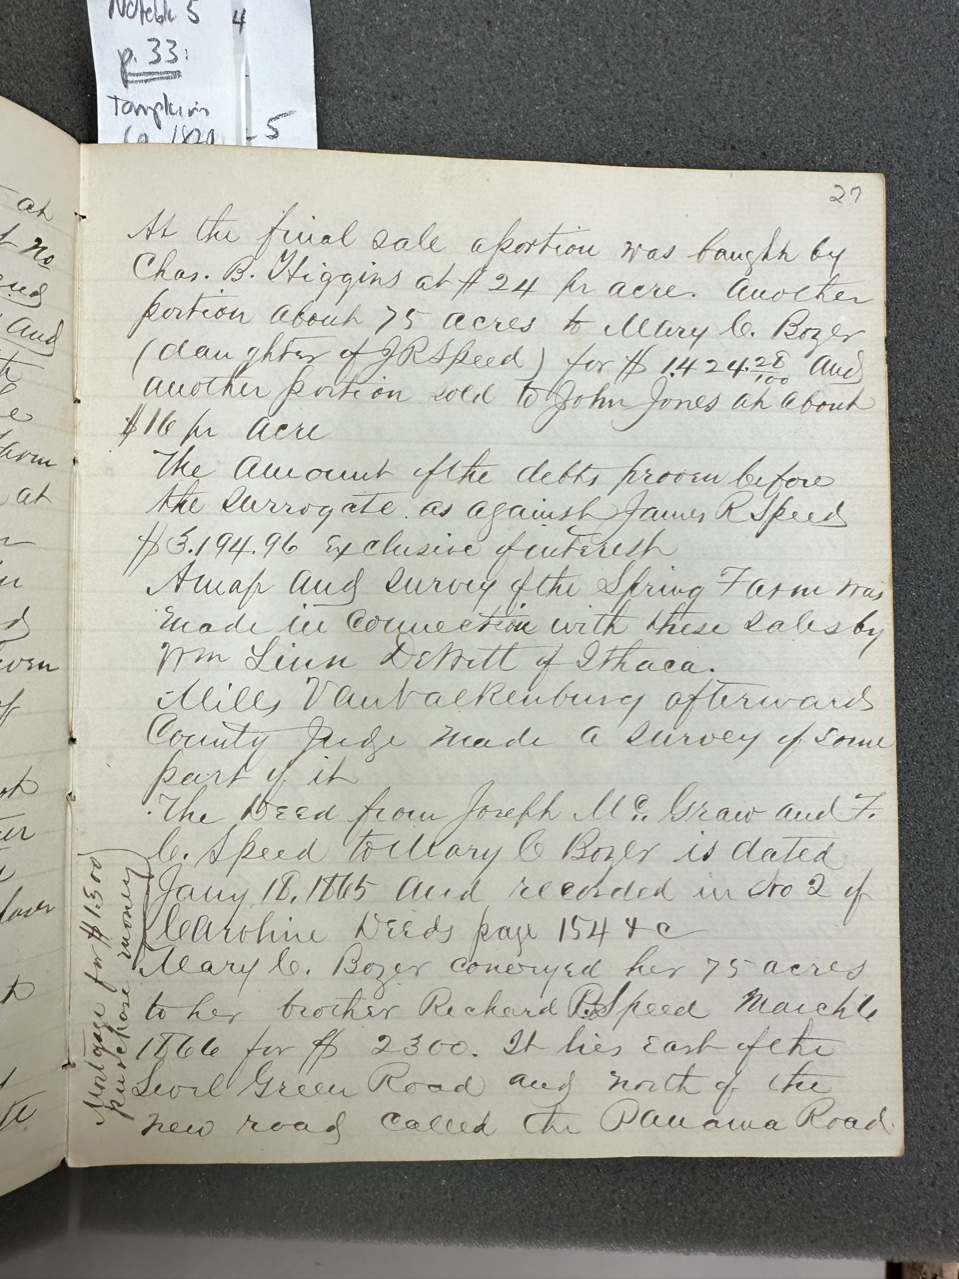 Notebk 5 4
p. 33:
Tompkins
Co 1820 - 5
27
At the final sale a portion was baught by
Chas. B. Higgins at $24 pr acre. Another
portion about 75 acres to Mary C. Bozer
(daughter of J R Speed) for $1424.28/100 And
another portion sold to John Jones at about
$16 pr acre
The Amount of the debts proven before
the Surrogate as against James R Speed
$3.194.96 Exclusive of interest
A map and Survey of the Spring Farm was
made in connection with these sales by
Wm Linn DeWitt of Ithaca.
Mills VanValkenburg afterwards
County Judge made a survey of some
part of it
The Deed from Joseph Mc. Graw and F.
C. Speed to Mary C Bozer is dated
Jany 18. 1865 and recorded in No 2 of
Caroline Deeds page 154 & c
Mary C. Bozer conveyed her 75 acres
to her brother Richard P. Speed March 6
1866 for $ 2300. It lies East of the
Level Green Road and north of the
new road called the Panama Road
Mortgage for $1300
purchase money
at
no
and
And
farm
at
of